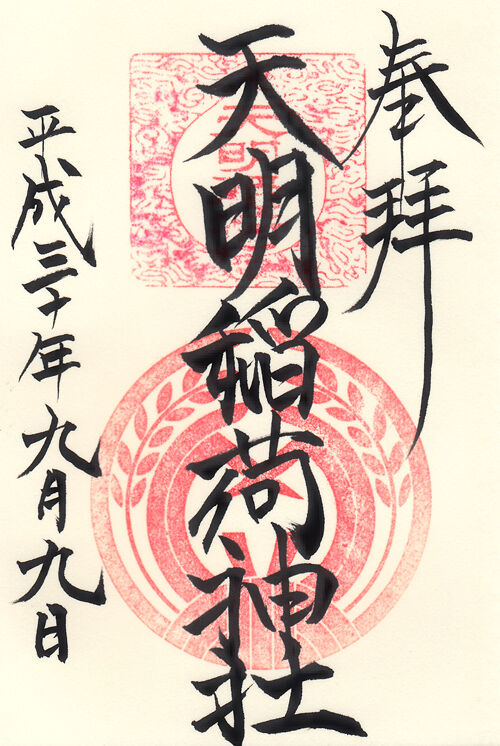 奉拝
天明稲荷神社
平成三十年九月九日